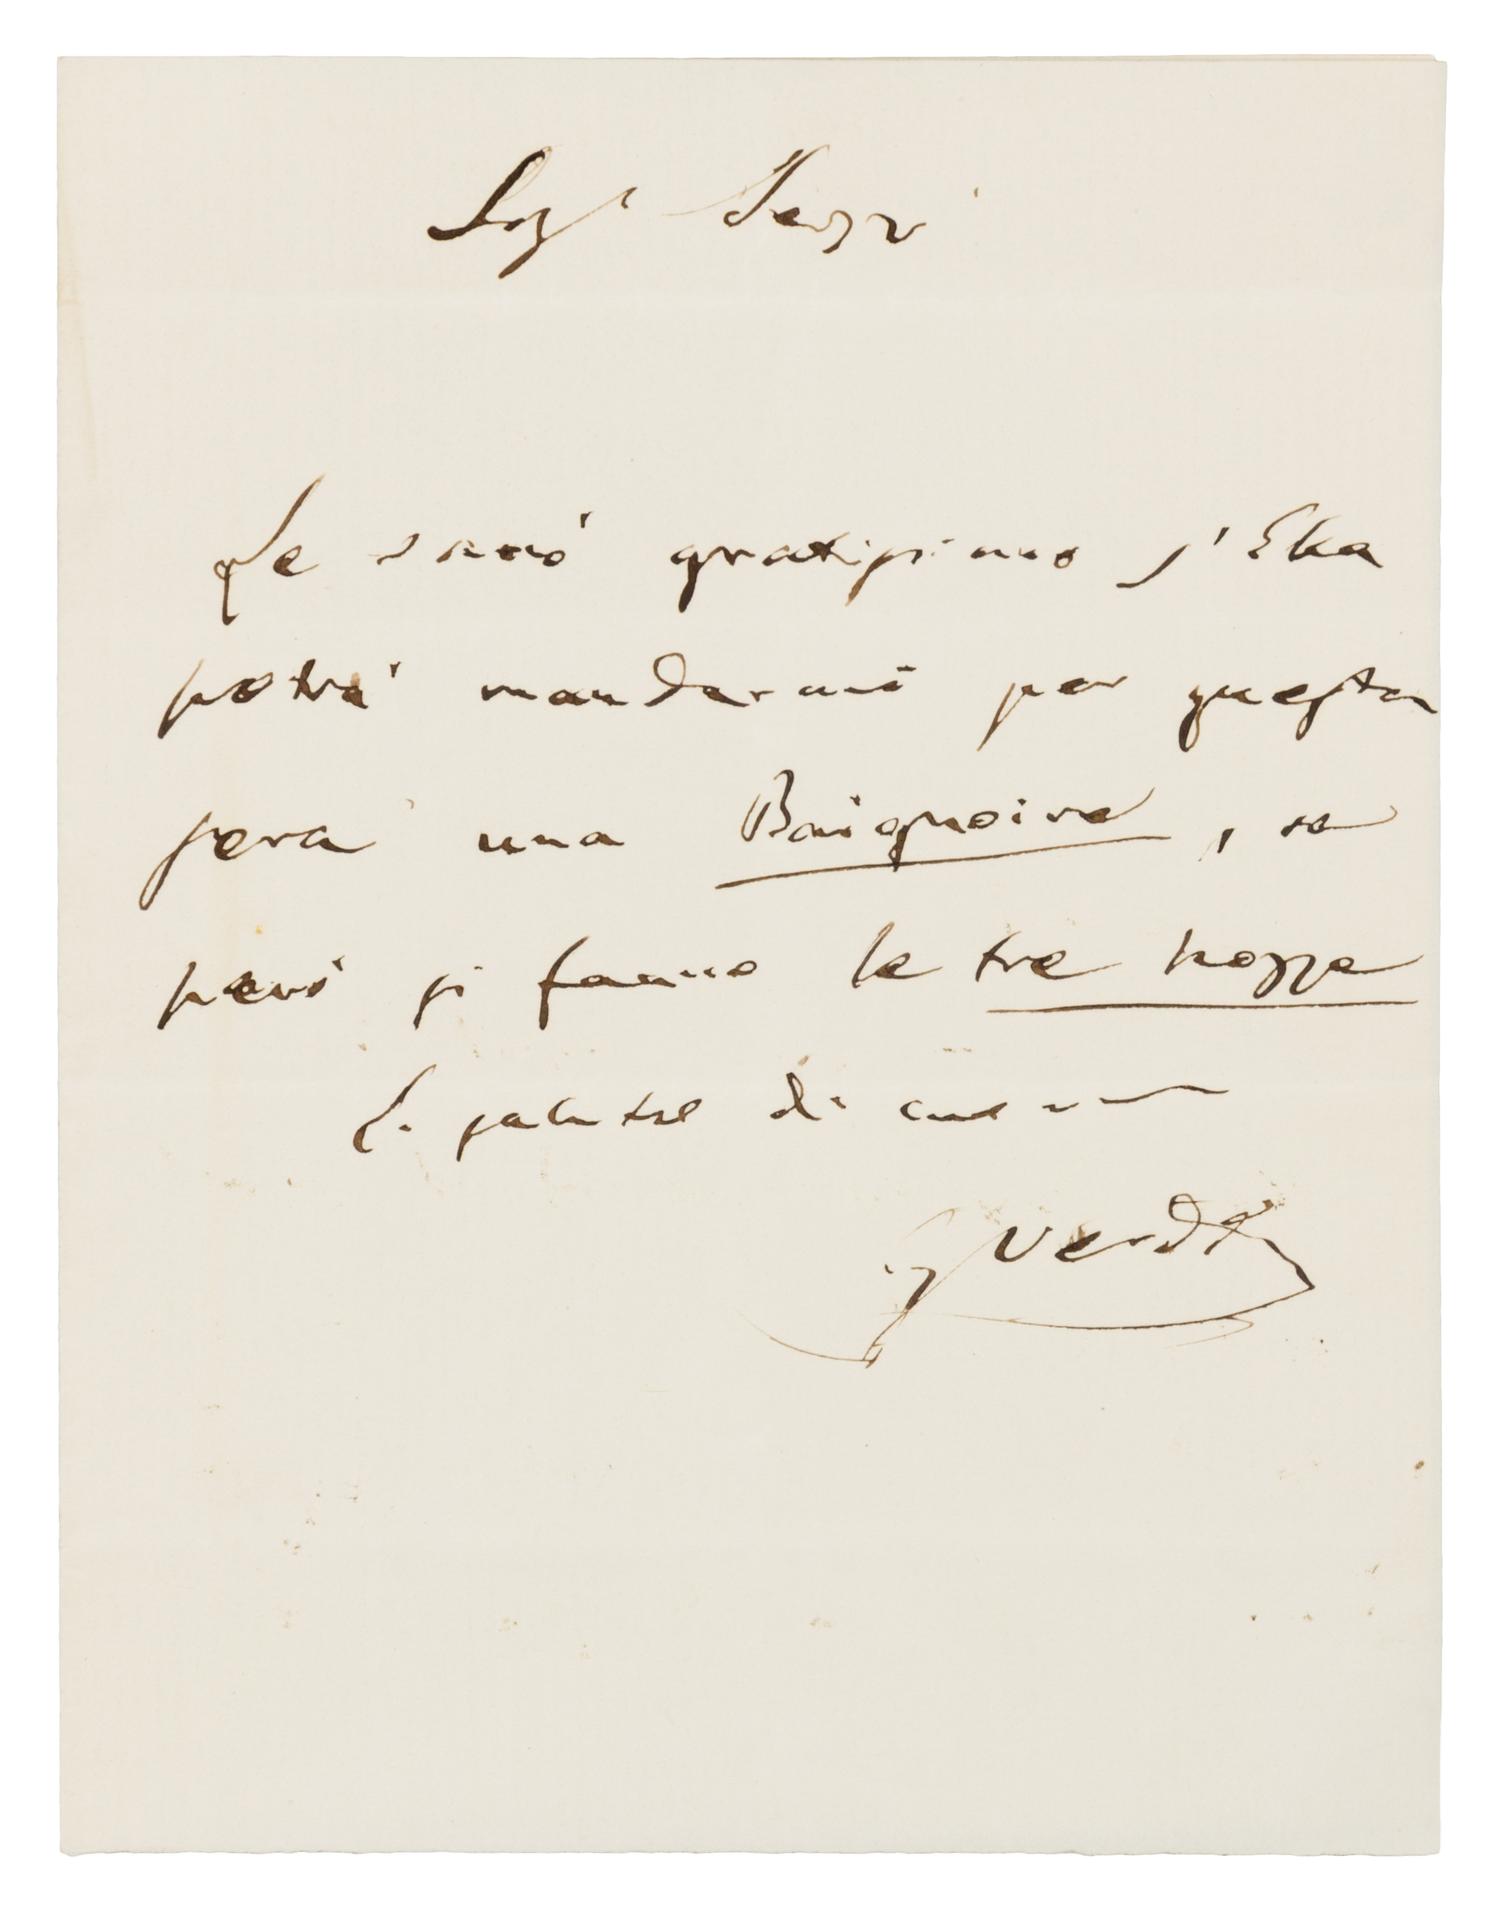 Sig.r
Le sarò gratissimo s'Ella
potrà mandarmi per questa
sera una Baignoire, se
però si fanno le tre nozze
La saluto di cuore
G Verdi